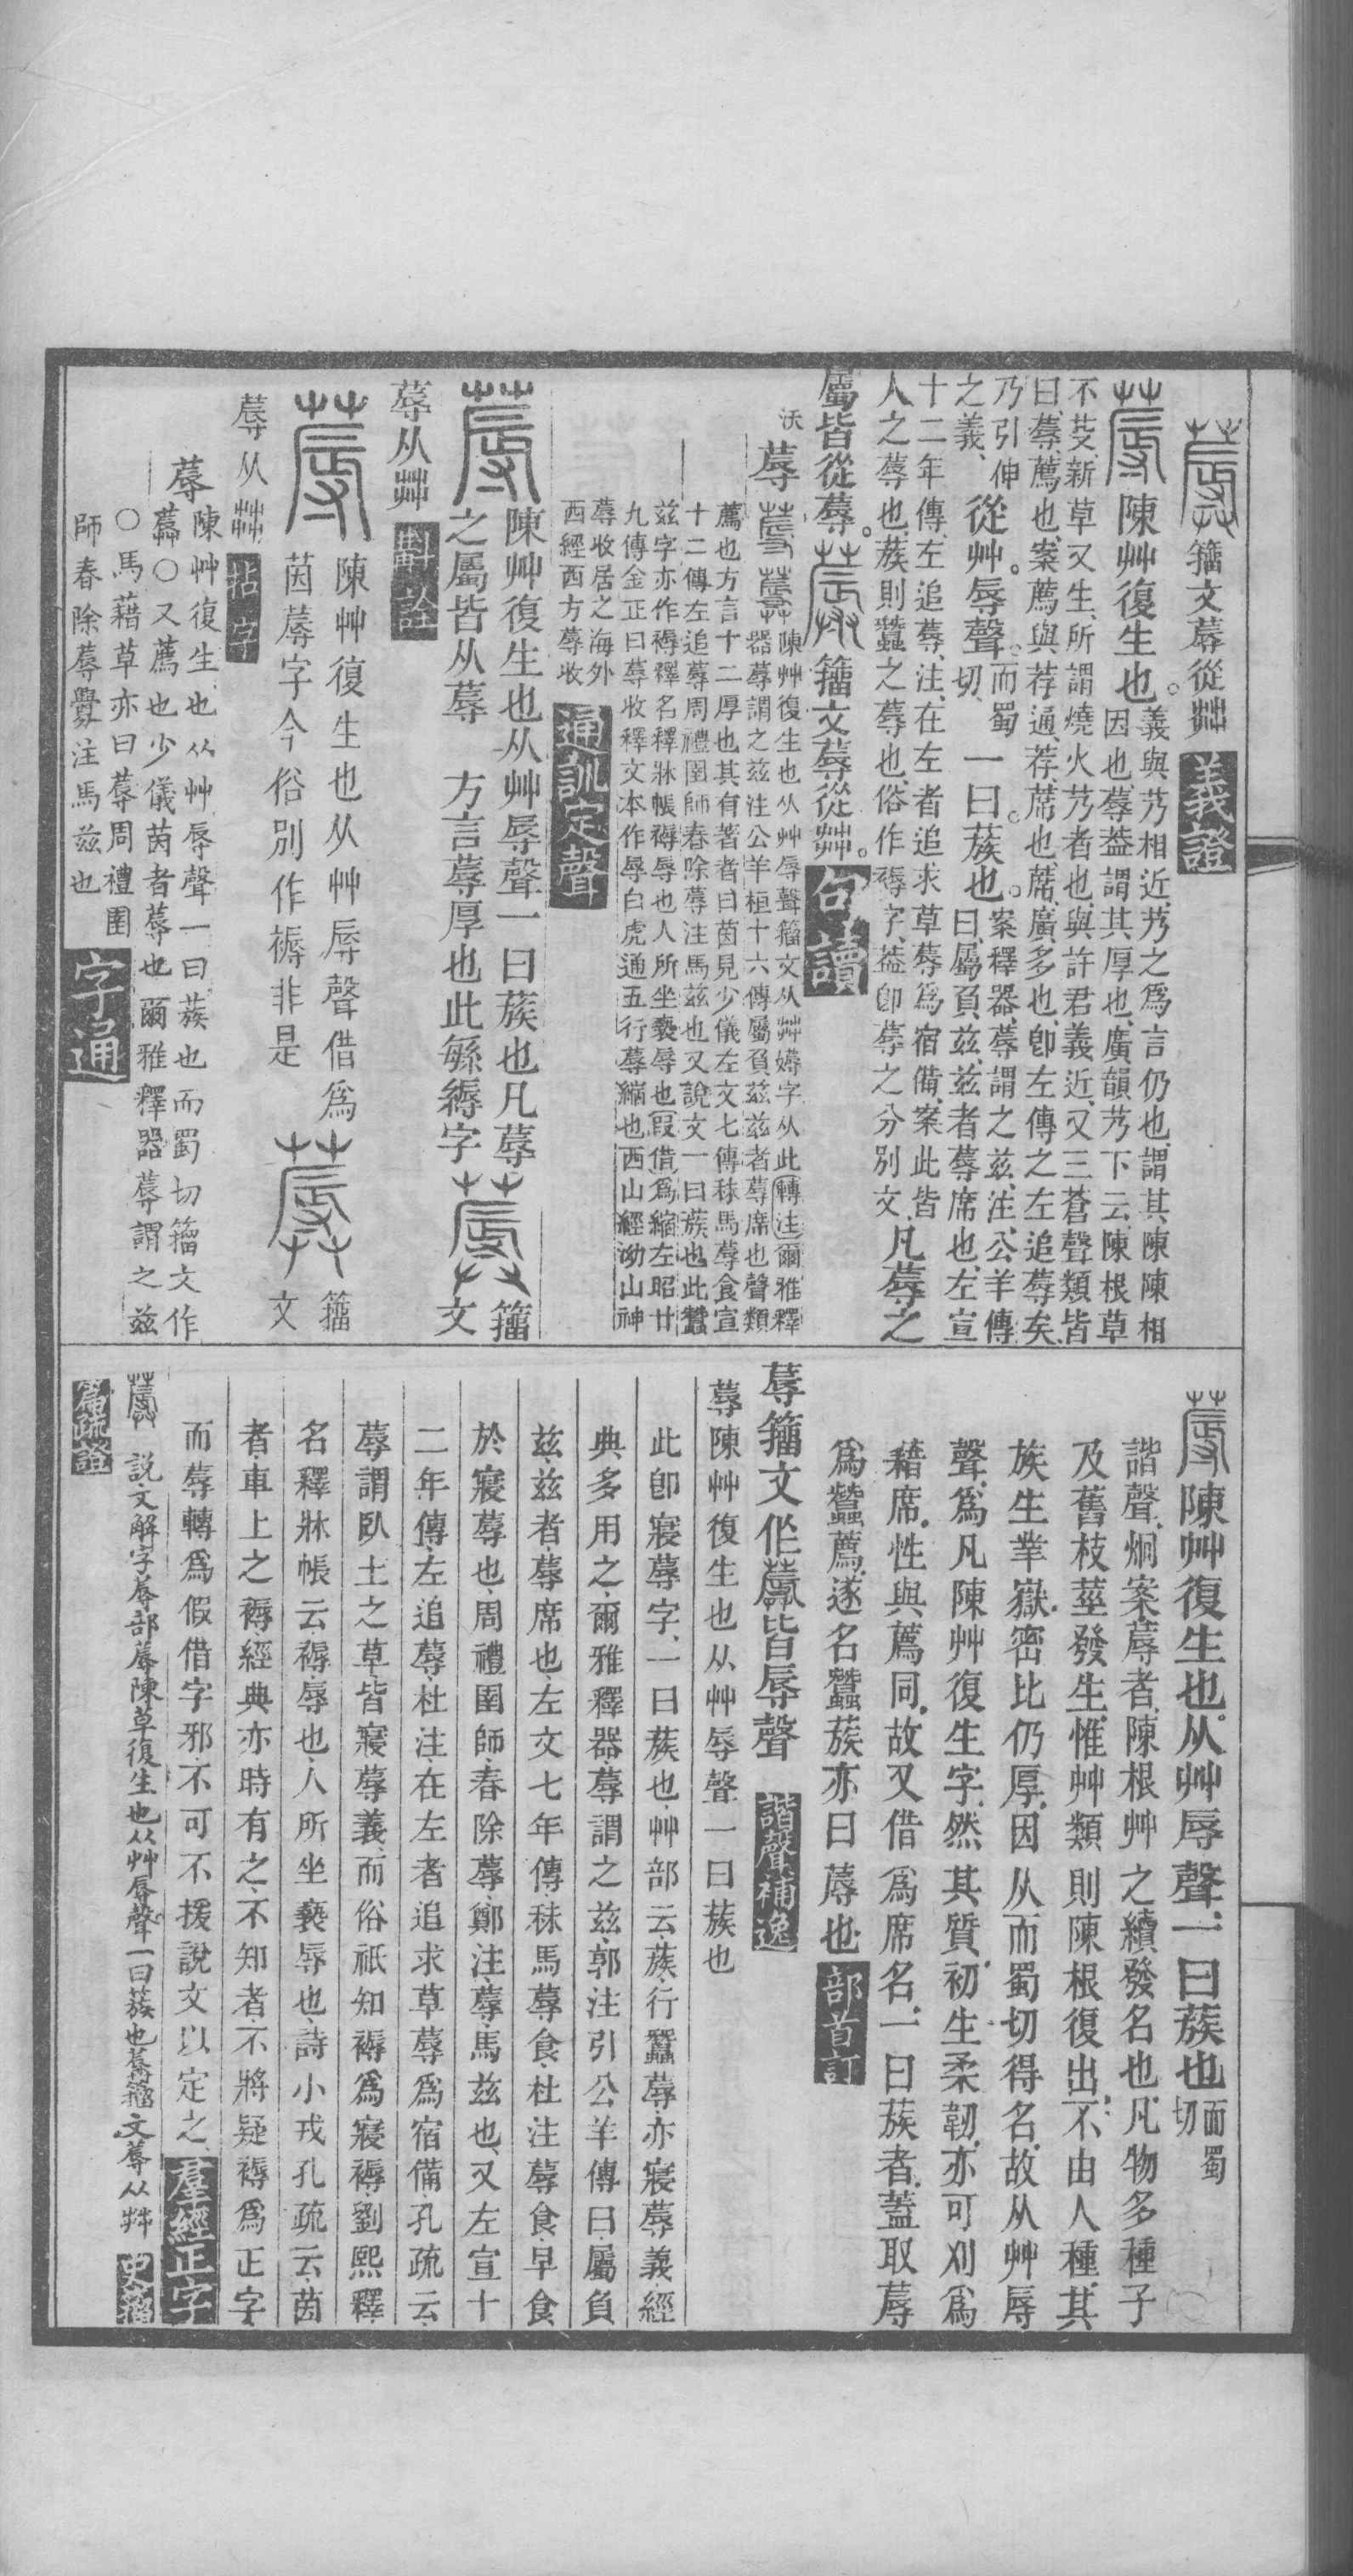 籒文蓐從茻 義證
陳艸復生也。義與艿相近艿之爲言仍也謂其陳陳相
因也蓐葢謂其厚也廣韻艿下云陳根草
不芟新草又生所謂燒火艿者也與許君義近又三蒼聲類皆
曰蓐薦也案薦與荐通荐席也蓆廣多也卽左傳之左追蓐矣
乃引伸
之義 從艸。辱聲。而蜀
切 一曰。蔟也。案釋器蓐謂之茲注公羊傳
曰屬負茲茲者蓐席也左宣
十二年傳左追蓐注在左者追求草蓐爲宿備案此皆
人之蓐也蔟則蠶之蓐也俗作褥字葢卽蓐之分別文 凡蓐之
屬皆從蓐。 籒文蓐從茻。 句讀
沃 蓐 陳艸復生也从艸辱聲籒文从茻媷字从此轉注爾雅釋
器蓐謂之茲注公羊桓十六傳屬負茲茲者蓐席也聲類
薦也方言十二厚也其有著者曰茵見少儀左文七傳秣馬蓐食宣
十二傳左追蓐周禮圉師春除蓐注馬茲也又說文一曰蔟也此蠶
茲字亦作褥釋名釋牀帳褥辱也人所坐褻辱也叚借爲縮左昭廿
九傳金正曰蓐收釋文本作辱白虎通五行蓐縮也西山經泑山神
蓐收居之海外
西經西方蓐收 通訓定聲
陳艸復生也从艸辱聲一曰蔟也凡蓐
之屬皆从蓐 方言蓐厚也此緐縟字 籒
文
蓐从茻 斠詮
陳艸復生也从艸辱聲借爲
茵蓐字今俗別作褥非是 籒
文
蓐从茻 拈字
蓐 陳艸復生也从艸辱聲一曰蔟也而蜀切籒文作
○又薦也少儀茵者蓐也爾雅釋器蓐謂之茲
○馬藉草亦曰蓐周禮圉
師春除蓐釁注馬茲也 字通
陳艸復生也从艸辱聲一曰蔟也而蜀
切
諧聲炯案蓐者陳根艸之續發名也凡物多種子
及舊枝莖發生惟艸類則陳根復出不由人種其
族生丵嶽密比仍厚因从而蜀切得名故从艸辱
聲爲凡陳艸復生字然其質初生柔韌亦可刈爲
藉席性與薦同故又借爲席名一曰蔟者蓋取蓐
爲蠶薦遂名蠶蔟亦曰蓐也 部首訂
蓐籒文作 皆辱聲 諧聲補逸
蓐陳艸復生也从艸辱聲一曰蔟也
此卽寢蓐字一曰蔟也艸部云蔟行蠶蓐亦寢蓐義經
典多用之爾雅釋器蓐謂之茲郭注引公羊傳曰屬負
茲茲者蓐席也左文七年傳秣馬蓐食杜注蓐食早食
於寢蓐也周禮圉師春除蓐鄭注蓐馬茲也又左宣十
二年傳左追蓐杜注在左者追求草蓐爲宿備孔疏云
蓐謂臥土之草皆寢蓐義而俗祇知褥爲寢褥劉熙釋
名釋牀帳云褥辱也人所坐褻辱也詩小戎孔疏云茵
者車上之褥經典亦時有之不知者不將疑褥爲正字
而蓐轉爲假借字邪不可不援說文以定之 羣經正字
說文解字蓐部蓐陳草復生也从艸辱聲一曰蔟也 籒文蓐从茻 史籒
篇疏證